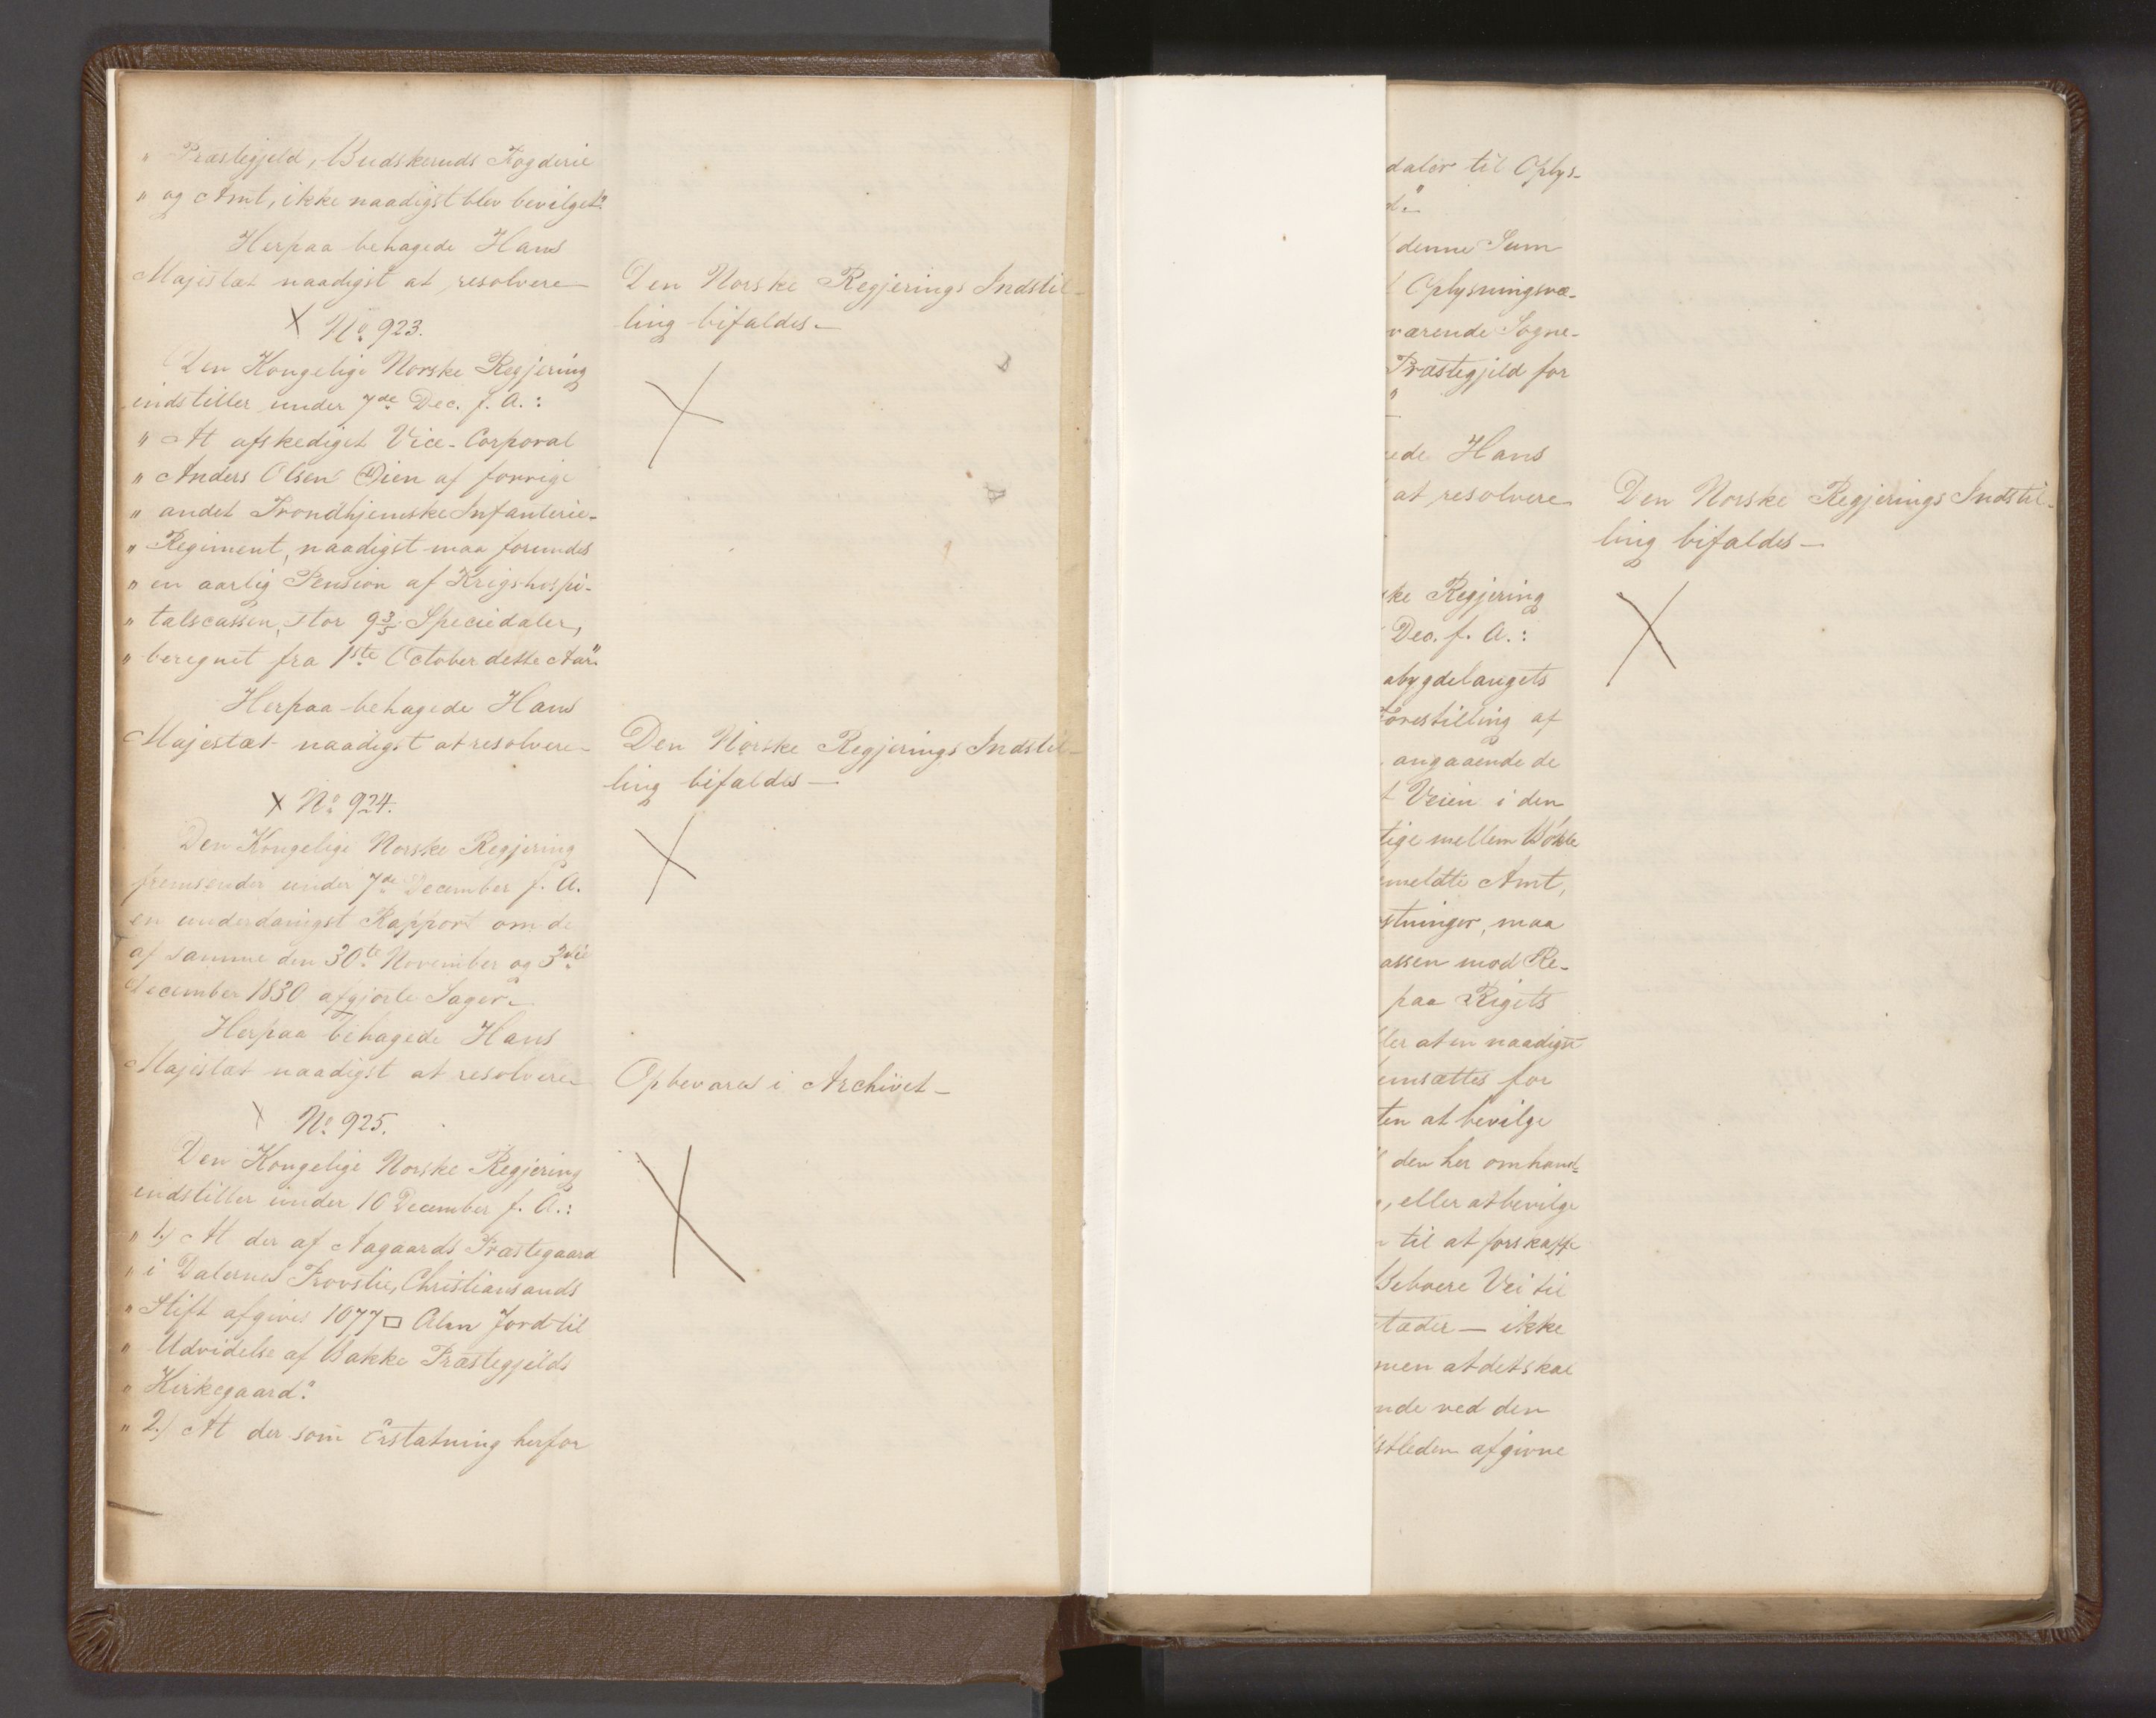 „ Præstegjeld, Budskeruds Fogderie
„ og Amt, ikke naadigst blev bevilget."
Herpaa behagede Hans
Majestæt naadigst at resolvere
Den Norske Regjerings Indstil-
ling bifaldes.
X No 923.
Den Kongelige Norske Regjering
indstiller under 7de Dec. f. A.:
„ At afskediget Vice-Corporal
„ Anders Olsen Öien af forrige
„ andet Trondhjemske Infanterie-
„ Regiment, naadigst maa forundes
„ en aarlig Pension af Krigshospi-
„ talscassen, stor 9 3/5 Speciedaler,
„ beregnet fra 1ste October dette Aar."
Herpaa behagede Hans
Majestæt naadigst at resolvere
Den Norske Regjerings Indstil-
ling bifaldes
X No 924.
Den Kongelige Norske Regjering
fremsender under 7de December f. A.
en underdanigst Rapport om de
af samme den 30te November og 3die
December 1830 afgjorte Sager.
Herpaa behagede Hans
Majestæt naadigst at resolvere
Opbevares i Archivet
X No 925.
Den Kongelige Norske Regjering
indstiller under 10 December f. A.:
„ 1.) At der af Aagaards Præstegaard
„ i Dalernes Provstie, Christiansands
„ Stift afgives 1077 □ Alen Jord til
„ Udvidelse af Bakke Præstegjelds
„ Kirkegaard."
„ 2.) At der som Erstatning herfor
daler til Oplys-
d."
denne Sum
Oplysningsvæ-
værende Sogne-
Præstegjeld for
"
ede Hans
at resolvere
Den Norske Regjerings Indstil-
ling bifaldes
ske Regjering
Dec. f. A.:
abygdelaugets
Forestilling af
angaaende de
t Veien i den
tige mellem Böhle
meldte Amt,
stninger, maa
assen mod Re-
paa Rigets
ler at en naadigst
emsættes for
ten at bevilge
den her omhand-
, eller at bevilge
til at forskaffe
Beboere Vei til
stæder — ikke
men at det skal
nde ved den
stleden afgivne